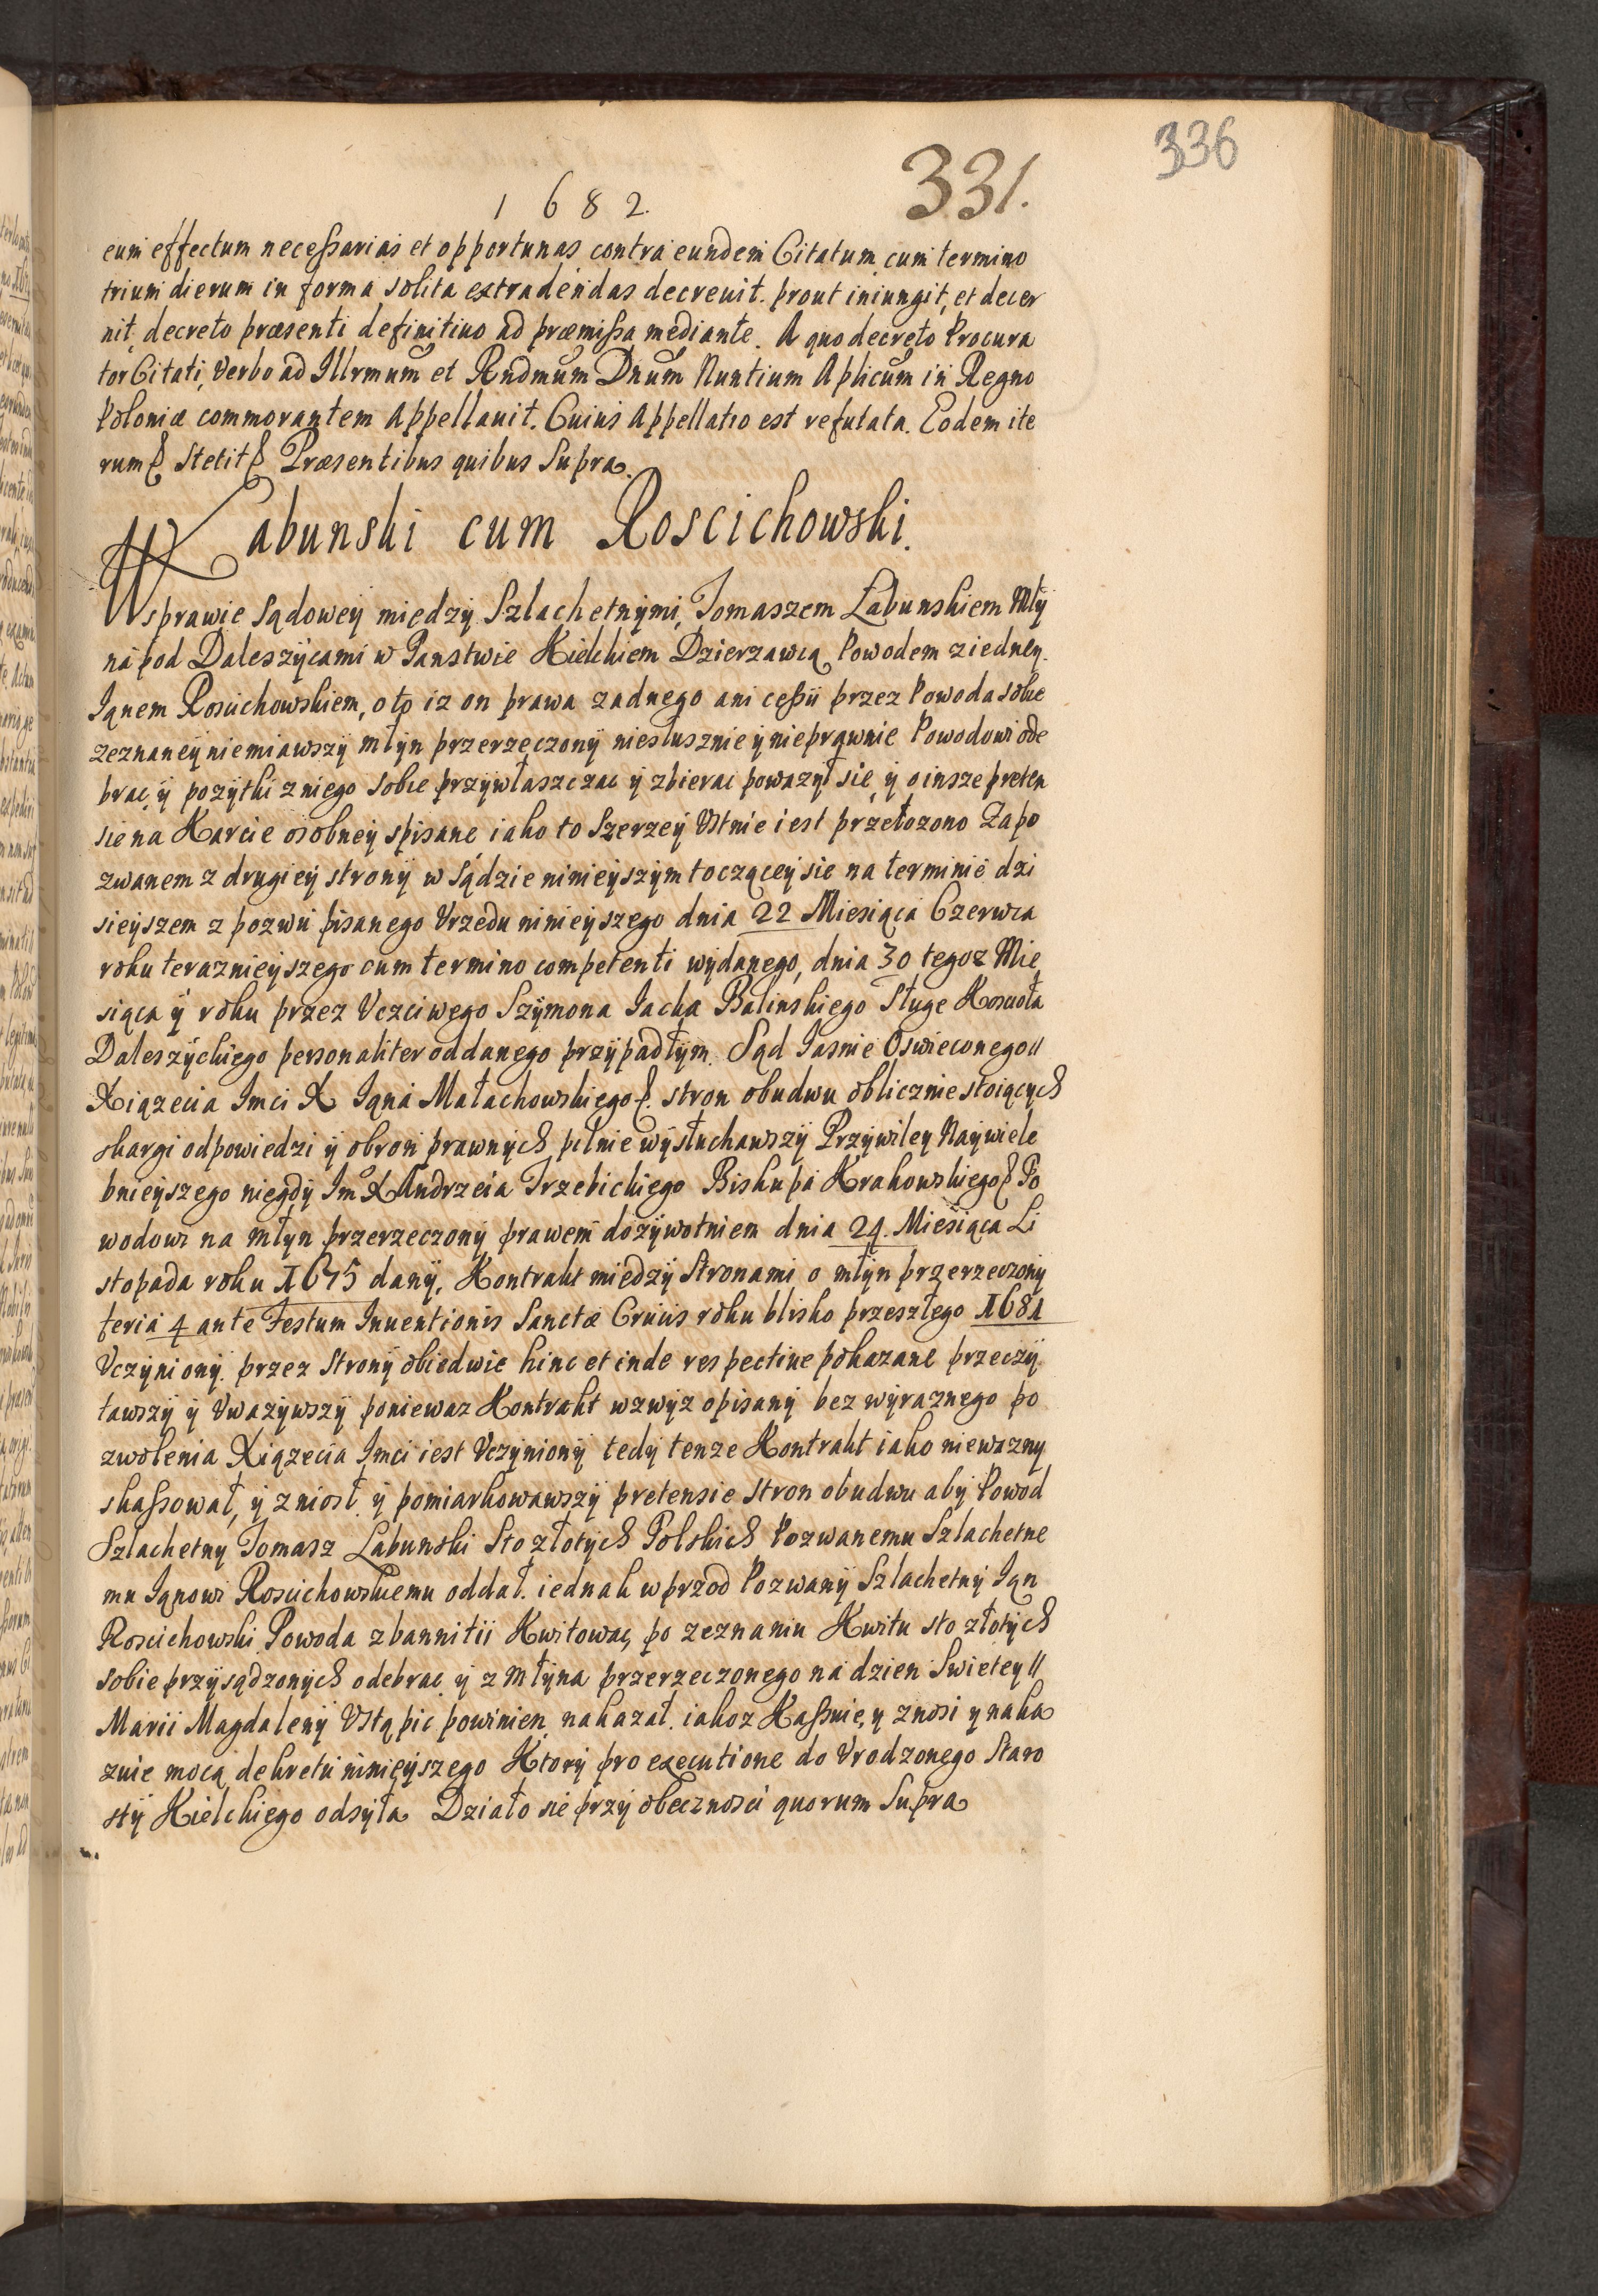 336
331.
1682.
eum effectum necessarias et opportunas contra eundem Citatum cum termino
trium dierum in forma solita extradendas decreuit. prout iniungit, et decer
nit decreto præsenti definitiuo ad præmissa mediante. A quo decreto Procura
tor Citati, Verbo ad Illrmum et Rndmum Dnum Nuntium Aplicum in Regno
Poloniæ commorantem Appellauit. Cuius Appellatio est refutata. Eodem ite
rum Stetit Præsentibus quibus Supra.
Łabunski cum Roscichowski.
W sprawie Sądowey między Szlachetnymi, Tomaszem Łabunskiem Mły
na pod Daleszycami w Panstwie Kielckiem Dzierzawcą Powodem z iedney
Iąnem Roscichowskiem, o to iz on prawa zadnego ani cessii przez Powoda sobie
zeznaney niemiawszy młyn przerzeczony niesłusznie y nieprawnie Powodowi ode
brac, y pozytki z niego sobie przywłaszczac y zbierac powazył sie, y o insze preten
sie na Karcie osobney spisane iako to Szerzey Vstnie iest przełozono Zapo
zwanem z drugiey strony w Sądzie ninieyszym toczącey sie na terminie dzi
sieyszem z pozwu pisanego Vrzedu ninieyszego dnia 22 Miesiąca Czerwca
roku teraznieyszego cum termino competenti wydanego, dnia 30 tegoz Mie
siąca y roku przez Vczciwego Szymona Iacka Balinskiego Sługe Koscioła
Daleszyckiego personaliter oddanego przypadłym. Sąd Iasnie Oswieconego
Xiązecia Imci X Iąna Małachowskiego. stron obudwu oblicznie stoiących
skargi odpowiedzi y obron prawnych pilnie wysłuchawszy Przywiley Naywiele
bnieyszego niegdy Im X Andrzeia Trzebickiego Biskupa Krakowskiego Po
wodowi na młyn przerzeczony prawem dozywotniem dnia 24. Miesiąca Li
stopada roku 1675 dany, Kontrakt miedzy Stronami o młyn przerzeczony
feria 4 ante Festum Inuentionis Sanctæ Crucis roku blisko przeszłego 1681
Vczyniony. przez Strony obiedwie hinc et inde respectiue pokazane przeczy
tawszy y Vwazywszy poniewaz Kontrakt wzwyz opisany bez wyraznego po
zwolenia Xiązecia Imci iest Vczyniony tedy tenze Kontrakt iako niewazny
skassował, y zniosł. y pomiarkowawszy pretensie stron obudwu aby Powod
Szlachetny Tomasz Łabunski Sto złotych Polskich Pozwanemu Szlachetne
mu Iąnowi Roscichowskiemu oddał. iednak wprzod Pozwany Szlachetny Iąn
Roscichowski Powoda z bannitii Kwitowac, po zeznaniu Kwitu sto złotych
sobie przysądzonych odebrac y z Młyna przerzeczonego na dzien Swietey
Marii Magdaleny Vstąpic powinien nakazał. iakoz Kassuie, y znosi y naka
zuie mocą dekretu ninieyszego Ktory pro executione do Vrodzonego Staro
sty Kielckiego odsyła Działo sie przy obecznosci quorum Supra